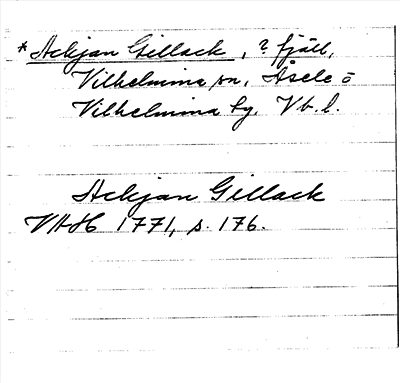 * Ackjan Gillack, ? fjäll,
Vilhelmina sn, Åsele o
Vilhelmina tg, Vb. l.
Ackjan Gillack
VHAH 1771, s. 176.